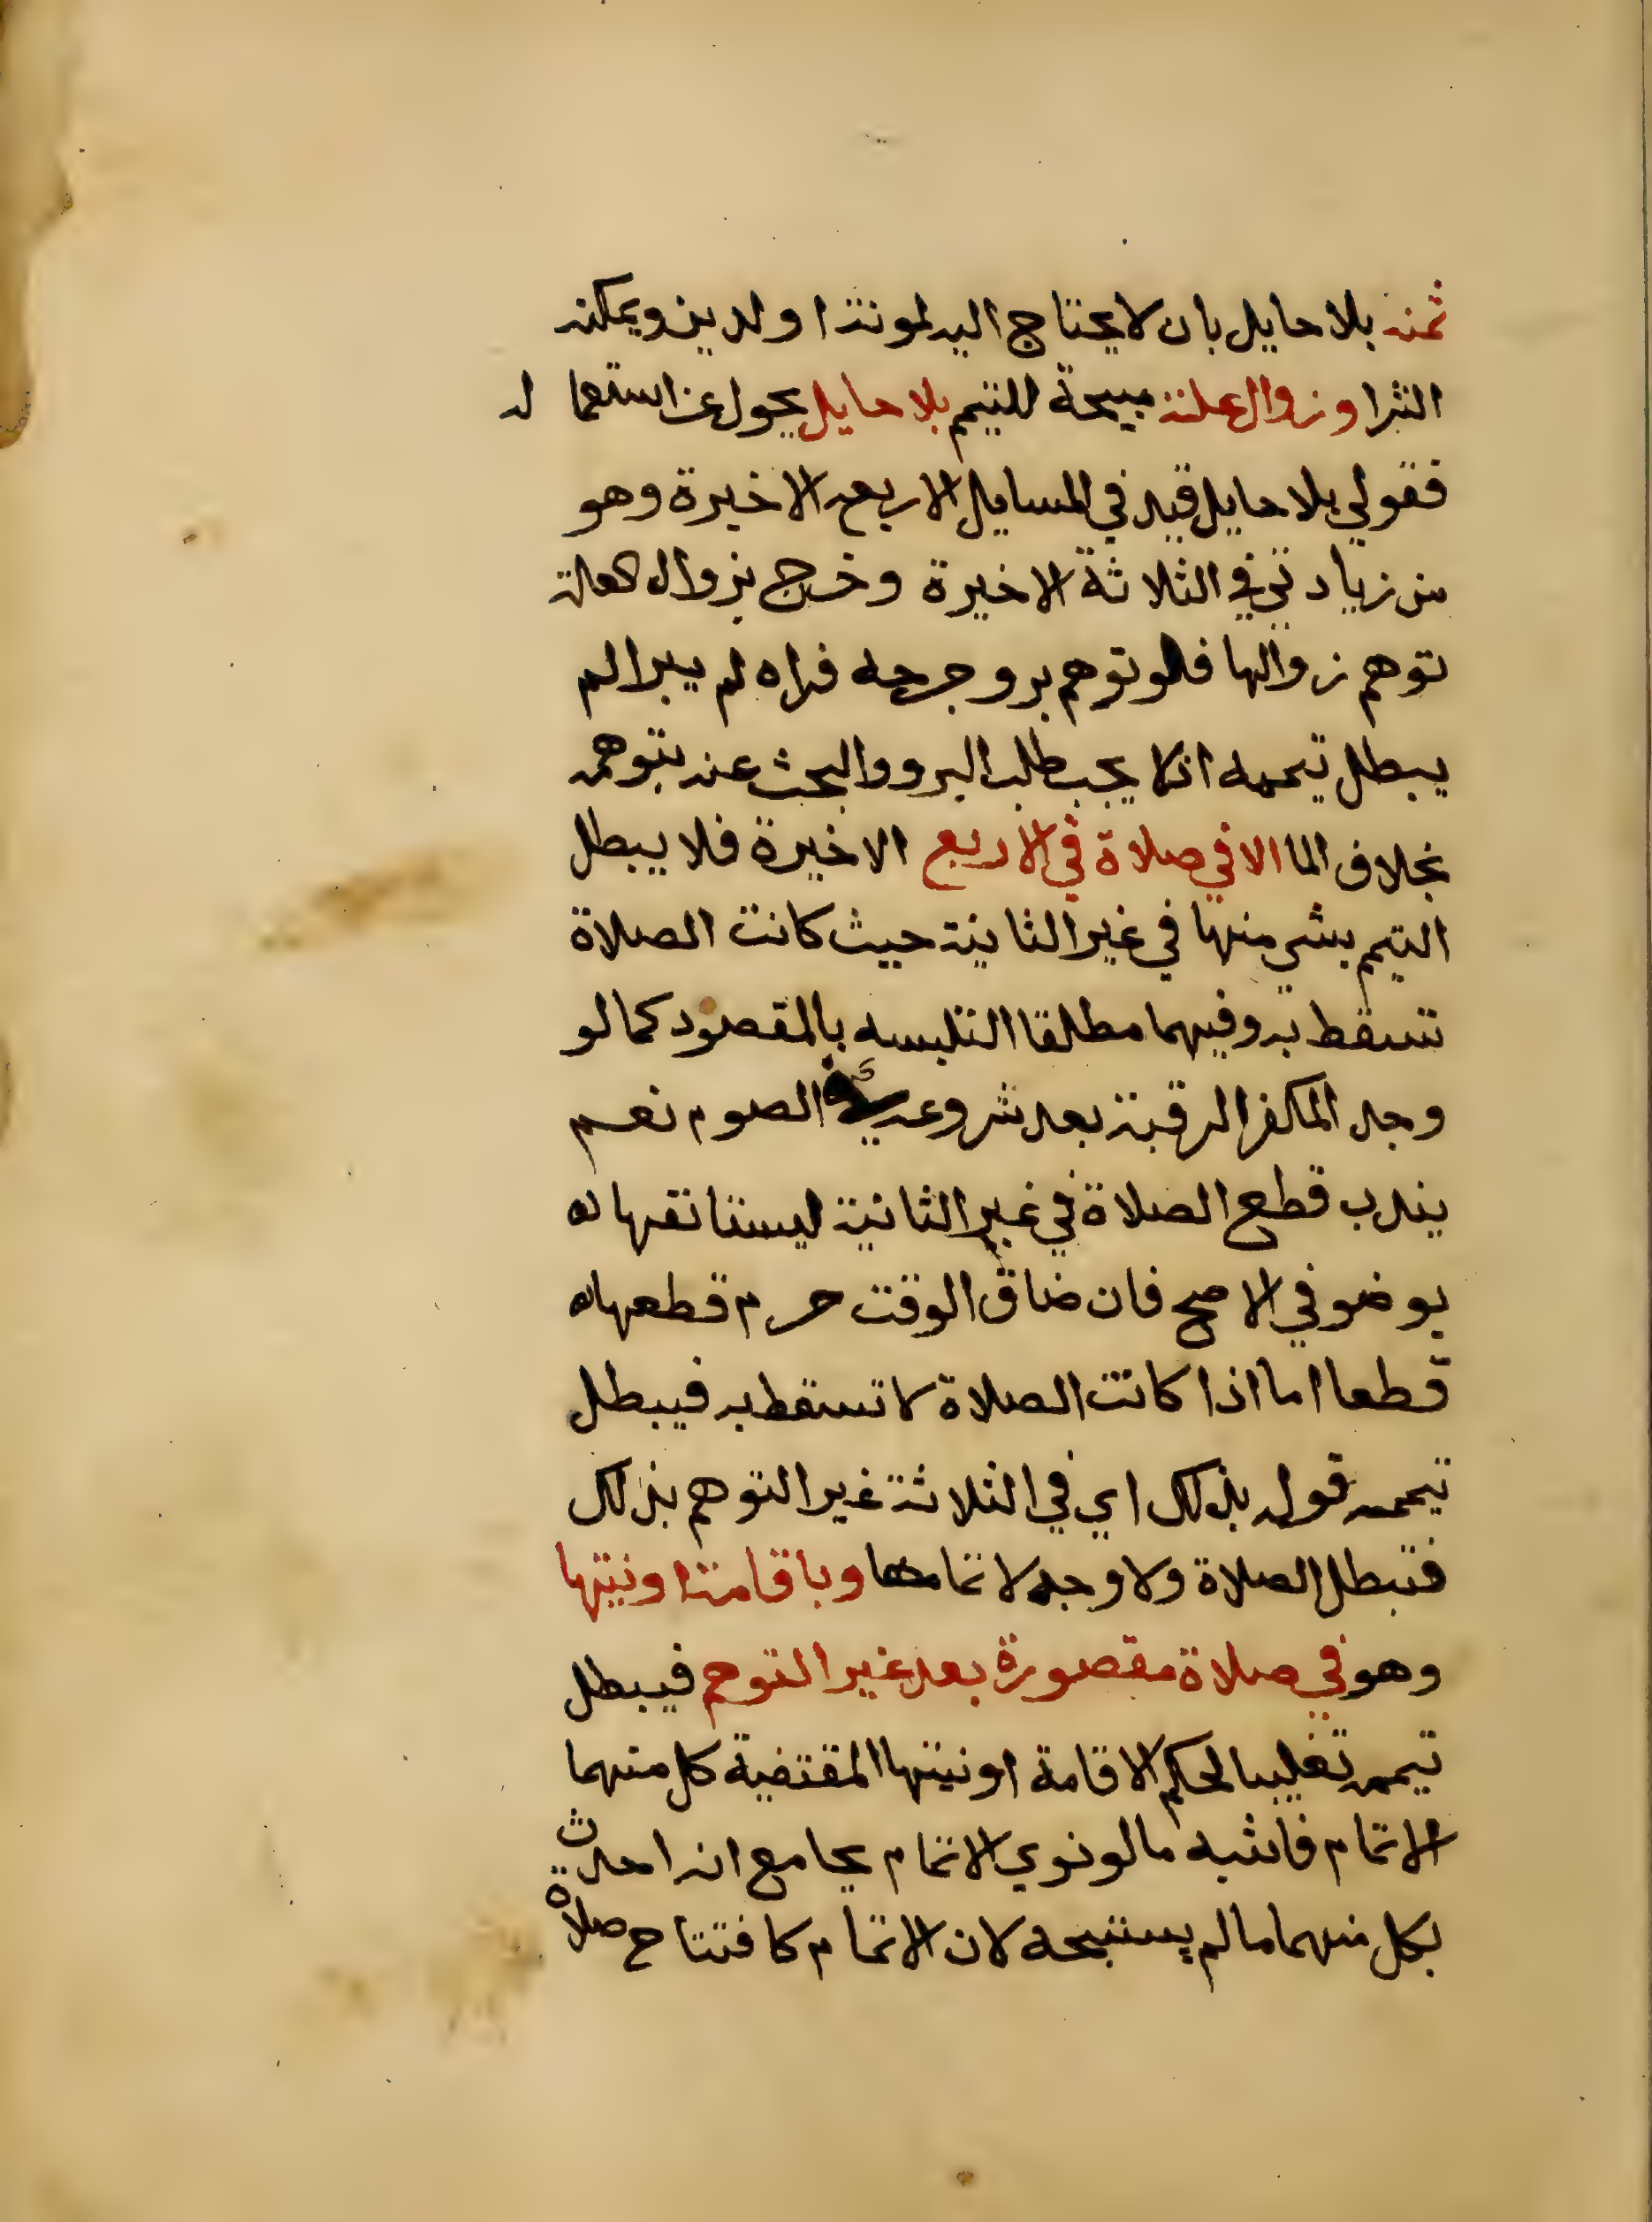 ثمنه بلا حايل بان لا يحتاج اليه لمونته او لدين ويمكنه
الشرا وزوال علته مبيحة للتيمم بلا حايل يحول عن استعما له
فقولي بلا حايل قيد في المسايل الاربعه الاخيرة وهو
من زيادتي في الثلاثة الاخيرة وخرج بزوال العلة
توهم زوالها فلو توهم برو جرحه فراه لم يبرا لم
يبطل تيممه اذ لا يجب طلب البرو والبحث عنه بتوهمه
بخلاف الما الا في صلاة في الاربع الاخيرة فلا يبطل
التيمم بشي منها في غير الثانية حيث كانت الصلاة
تسقط به وفيهما مطلقا التلبسه بالمقصود كما لو
وجد المكفر الرقبة بعد شروعه في الصوم نعم
يندب قطع الصلاة في غير الثانية ليستانفها
بوضو في الاصح فان ضاق الوقت حرم قطعها
قطعا اما اذا كانت الصلاة لا تسقط به فيبطل
تيممه قوله بذلك اي في الثلاثة غير التوهم بذلك
فتبطل الصلاة ولا وجه لاتمامها وباقامته او نيتها
وهو في صلاة مقصورة بعد غير التوهم فيبطل
تيممه تغليبا لحكم الاقامة او نيتها المقتضية كل منهما
الاتمام فاشبه ما لو نوي الاتمام بجامع انه احدث
بكل منهما ما لم يستبحه لان الاتمام كافتتاح صلاة